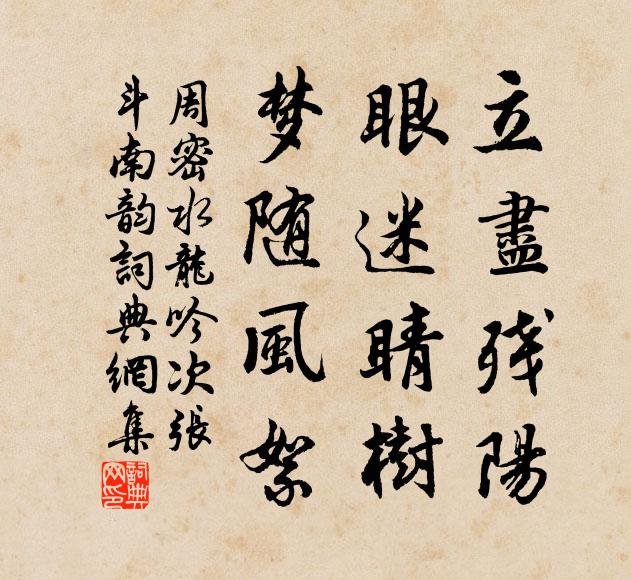 立盡残陽
眼迷晴樹
梦随風絮
周密水龍吟次張
斗南韵詞典網集
詞典网印